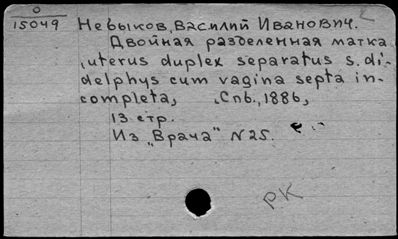 О
15049
Невыков, Василий Иванович.
Двойная разделенная матка
, uterus duplex separatus s. di-
delphys cum vagina septa in-
completa, , Спб., 1886,
13 стр.
Из „Врача" N 25.
РК